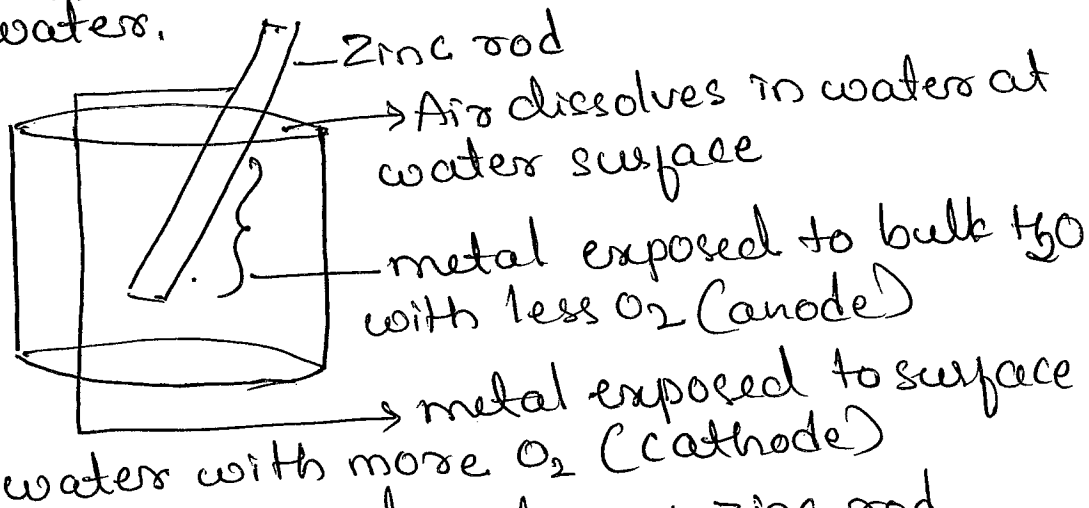 water.
Zinc rod
Air dissolves in water at
water surface
metal exposed to bulk H2O
with less O2 (anode)
metal exposed to surface
water with more O2 (cathode)
zinc rod